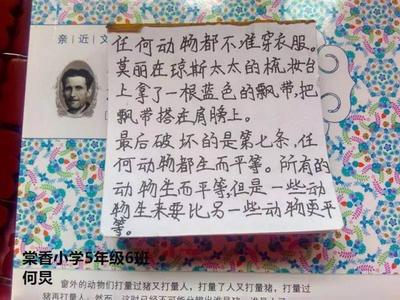 亲近文
任何动物都不准穿衣服。
莫丽在琼斯太太的梳妆台
上拿了一根蓝色的飘带,把
飘带搭在肩膀上。
最后破坏的是第七条,任
何动物都生而平等。所有的
动物生而平等,但是一些动
物生来要比另一些动物更平
等。
棠香小学5年级6班
何炅
窗外的动物们打量过猪又打量人,打量了人又打量猪,打量过
猪再打量人;然而,这时已经不可能分辨出谁是猪,谁是人了